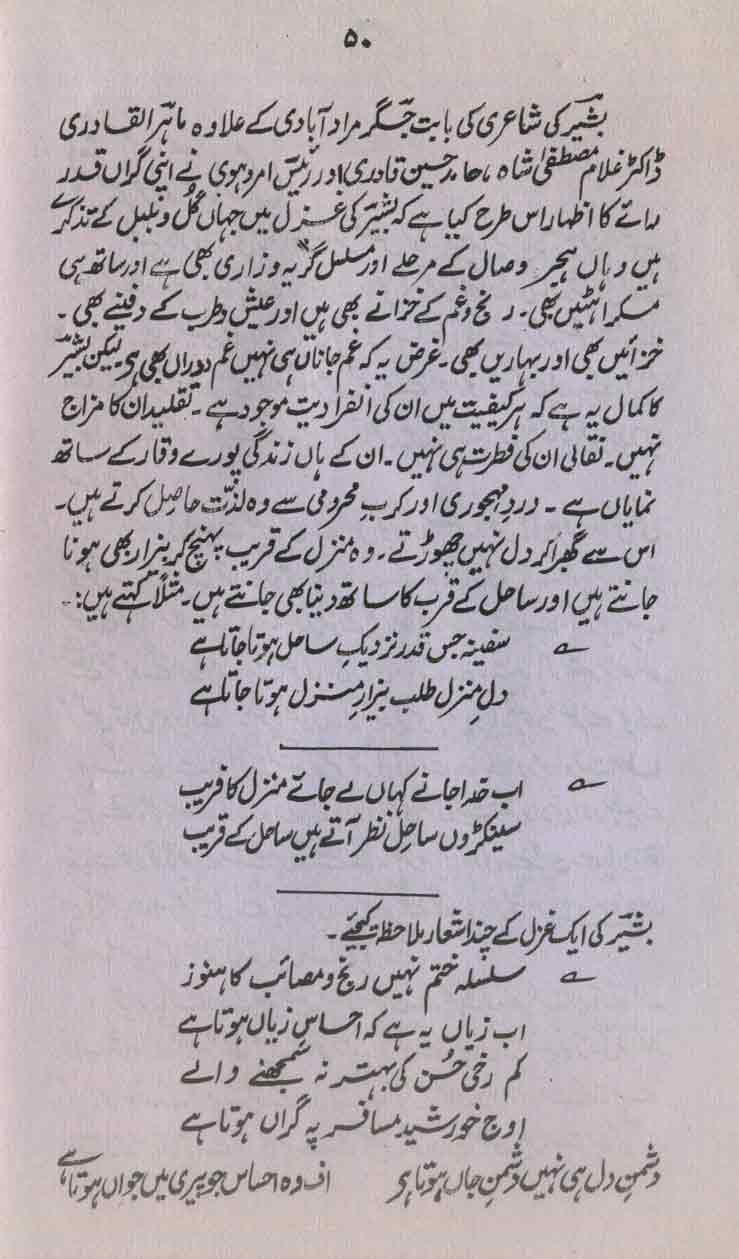 ۵۰
بشیرؔ کی شاعری کی بابت جگرؔ مراد آبادی کے علاوہ ماہر القادری
ڈاکٹر غلام مصطفیٰ شاہ، حامد حسین قادری اور رئیسؔ امروہوی نے اپنی گراں قدر
رائے کا اظہار اس طرح کیا ہے کہ بشیرؔ کی غزل میں جہاں گُل و بلبل کے تذکرے
ہیں وہاں ہجر وصال کے مرحلے اور مسلسل گریہ وزاری بھی ہے اور ساتھ ہی
مسکراہٹیں بھی۔ رنج و غم کے خزانے بھی ہیں اور عیش و طرب کے دفینے بھی۔
خزائیں بھی اور بہاریں بھی۔ غرض یہ کہ غم جاناں ہی نہیں غم دوراں بھی ہے لیکن بشیرؔ
کا کمال یہ ہے کہ ہر کیفیت میں ان کی انفرادیت موجود ہے۔ تقلید ان کا مزاج
نہیں۔ نقالی ان کی فطرت ہی نہیں۔ ان کے ہاں زندگی پورے وقار کے ساتھ
نمایاں ہے۔ دردِ مہجوری اور کربِ محرومی سے وہ لذّت حاصل کرتے ہیں۔
اس سے گھبرا کر دل نہیں چھوڑتے۔ وہ منزل کے قریب پہنچ کر بیزار بھی ہونا
جانتے ہیں اور ساحل کے قُرب کا ساتھ دینا بھی جانتے ہیں۔ مثلاً کہتے ہیں:۔
؎ سفینہ جس قدر نزدیکِ ساحل ہوتا جاتا ہے
دلِ منزل طلب بیزارِ منزل ہوتا جاتا ہے
؎ اب خدا جانے کہاں لے جائے منزل کا فریب
سینکڑوں ساحل نظر آتے ہیں ساحل کے قریب
بشیرؔ کی ایک غزل کے چند اشعار ملاحظہ کیجیے۔
؎ سلسلہ ختم نہیں رنج و مصائب کا ہنوز
اب زیاں یہ ہے کہ احساسِ زیاں ہوتا ہے
کم رخی حُسن کی بہتر نہ سمجھنے والے
اوجِ خورشید مسافر پہ گراں ہوتا ہے
دشمنِ دل ہی نہیں دشمنِ جاں ہوتا ہے اف وہ احساس جو پیری میں جواں ہوتا ہے